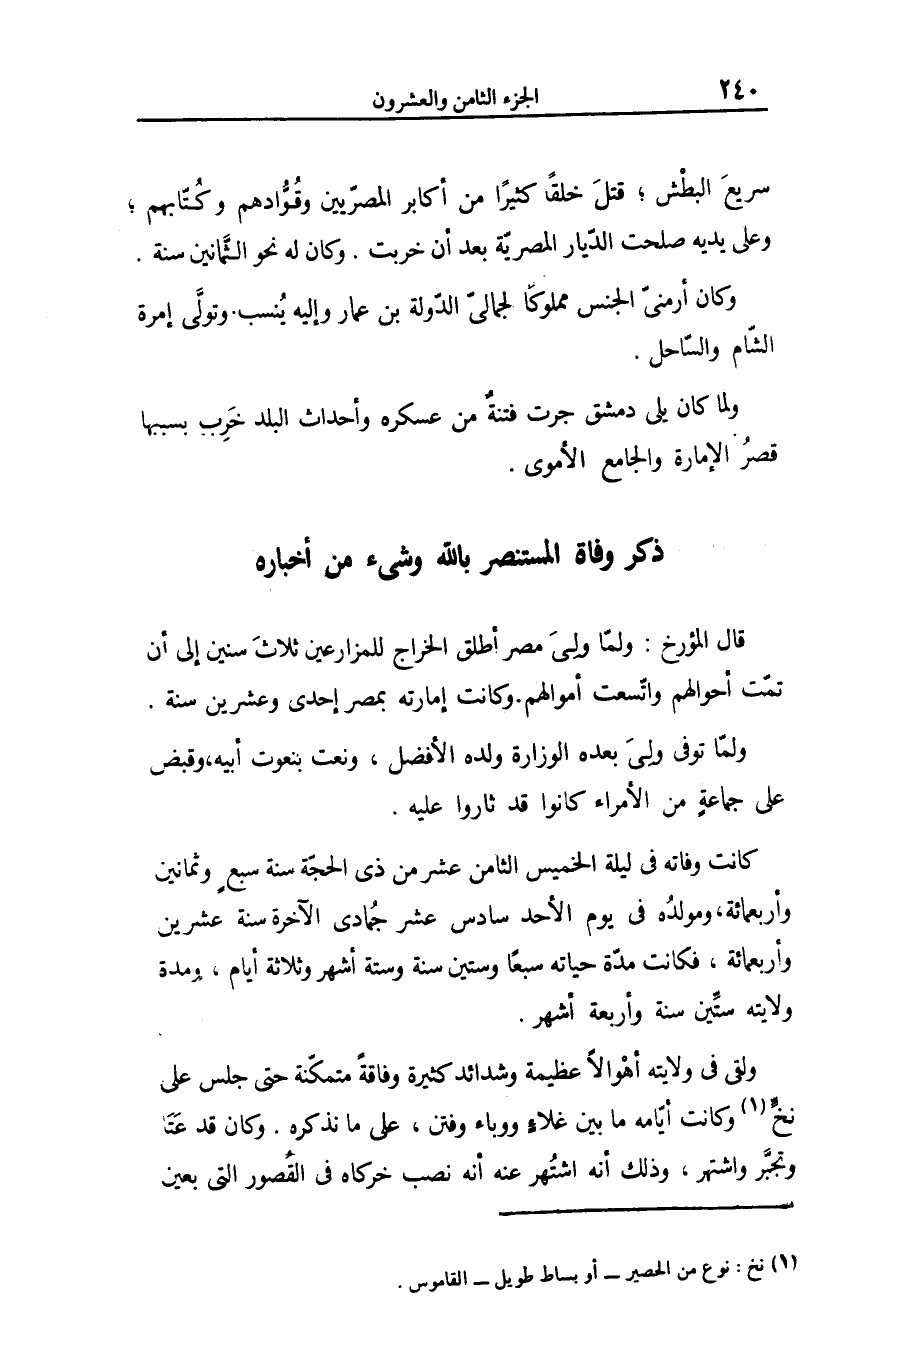 ٢٤٠
الجزء الثامن والعشرون
سريعَ البطْش ؛ قتلَ خلقًا كثيرًا من أكابر المصرّيين وقُوَّادهم وكُتّابهم ؛
وعلى يديه صلحت الدّيار المصريّة بعد أن خربت . وكان له نحو الثَّمانين سنة .
وكان أرمنىّ الجنس مملوكًا لجمالىّ الدّولة بن عمار وإليه يُنسب . وتولَّى إمرة
الشّام والسّاحل .
ولما كان يلى دمشق جرت فتنةٌ من عسكره وأحداث البلد خَرِب بسببها
قصرُ الإمارة والجامع الأموى .
ذكر وفاة المستنصر بالله وشىء من أخباره
قال المؤرخ : ولمّا ولِىَ مصر أطلق الخراج للمزارعين ثلاثَ سنين إلى أن
تمّت أحوالهم واتّسعت أموالهم . وكانت إمارته بمصر إحدى وعشرين سنة .
ولمّا توفى ولِىَ بعده الوزارة ولده الأفضل ، ونعت بنعوت أبيه ، وقبض
على جماعةٍ من الأمراء كانوا قد ثاروا عليه .
كانت وفاته فى ليلة الخميس الثامن عشر من ذى الحجّة سنة سبعٍ وثمانين
وأربعمائة ، ومولدُه فى يوم الأحد سادس عشر جُمادى الآخرة سنة عشرين
وأربعمائة ، فكانت مدّة حياته سبعًا وستين سنة وستة أشهر وثلاثة أيام ، ومدة
ولايته ستِّين سنة وأربعة أشهر .
ولقى فى ولايته أهْوالاً عظيمة وشدائد كثيرة وفاقةً متمكّنة حتى جلس على
نخٍّ (١) وكانت أيّامه ما بين غلاءٍ ووباء وفتن ، على ما نذكره . وكان قد عَتَا
وتجبَّر واشتهر ، وذلك أنه اشتُهر عنه أنه نصب خركاه فى القُصور التى بعين
(١) نخ : نوع من الحصير ــ أو بساط طويل ــ القاموس .